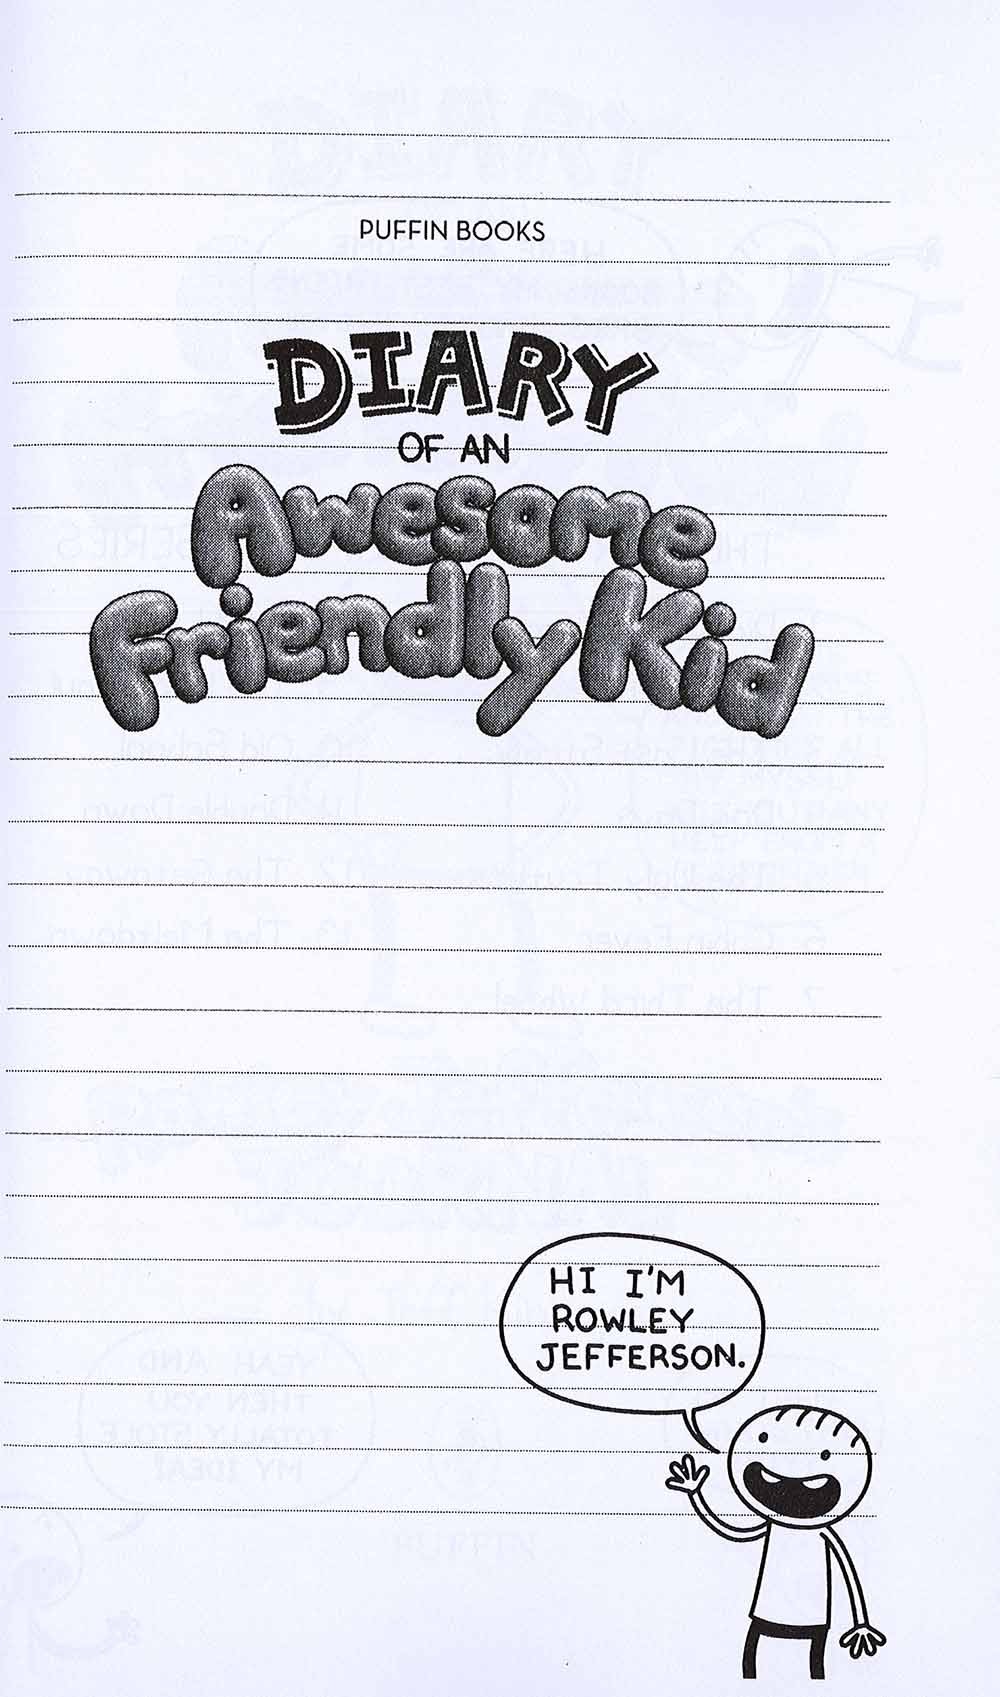 PUFFIN BOOKS
DIARY
OF AN
Awesome
Friendly Kid
HI I'M
ROWLEY
JEFFERSON.